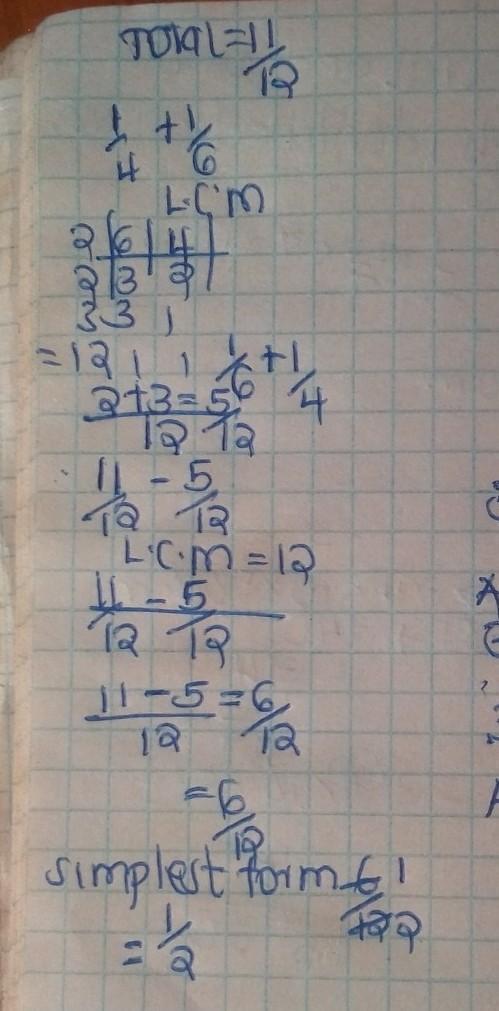 Total = 11/12
1/4 + 1/6
L.C.M
2 | 6 | 4
2 | 3 | 2
3 3 1
= 12 1 1 1/6 + 1/4
2 + 3 = 5/12
12
11/12 - 5/12
L.C.M = 12
11/12 - 5/12
11 - 5 = 6/12
12
= 6/12
simplest form 6/12 1/2
= 1/2